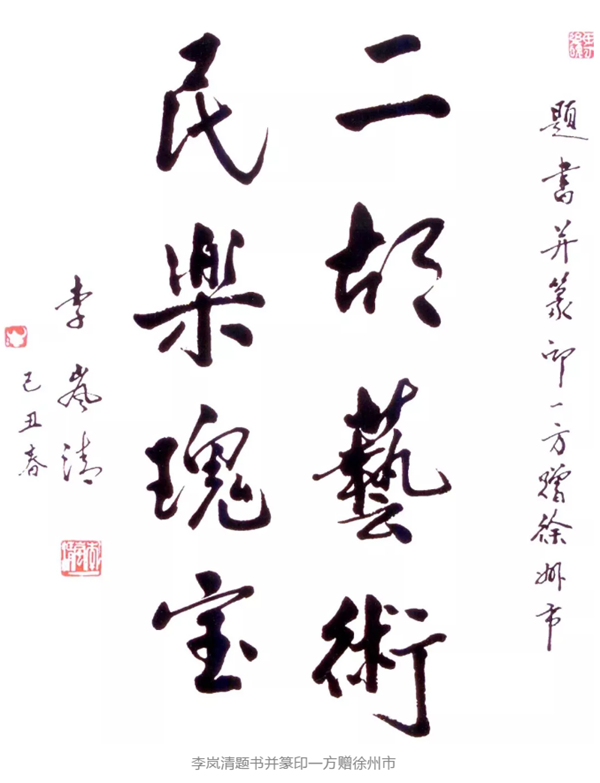 題書并篆印一方贈徐州市
二胡藝術
民樂瑰宝
李嵐清
己丑春
李岚清题书并篆印一方赠徐州市